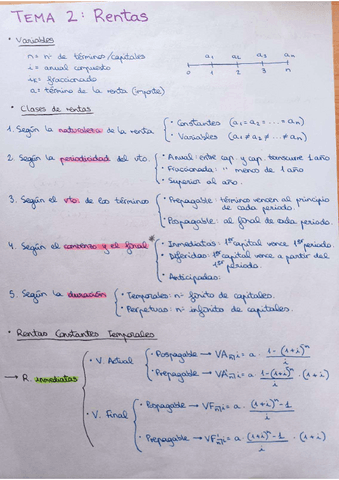 TEMA 2: Rentas
• Variables
n = nº de términos/capitales
i = anual compuesto
ik = fraccionado
a = término de la renta (importe)
a1 a2 an
0 1 2 3 n
• Clases de rentas
1. Según la naturaleza de la renta
• Constantes (a1 = a2 = ... = an)
• Variables (a1 ≠ a2 ≠ ... ≠ an)
2. Según la periodicidad del vto.
• Anual: entre cap. y cap. transcurre 1 año
• Fraccionada: " menos de 1 año
• Superior al año.
3. Según el vto. de los términos
• Prepagable: término vencen al principio
de cada periodo.
• Pospagable: al final de cada periodo.
4. Según el comienzo y el final
• Inmediatas: 1er capital vence 1er periodo.
• Diferidas: 1er capital vence a partir del
1er periodo.
• Anticipadas:
5. Según la duración
• Temporales: nº finito de capitales.
• Perpetuas: nº infinito de capitales.
• Rentas Constantes Temporales
→ R. inmediatas
• V. Actual
• Pospagable → VA n¬i = a · 1-(1+i)^-n / i
• Prepagable → VA n¬i = a · 1-(1+i)^-n / i · (1+i)
• V. Final
• Pospagable → VF n¬i = a · (1+i)^n - 1 / i
• Prepagable → VF n¬i = a · (1+i)^n - 1 / i · (1+i)